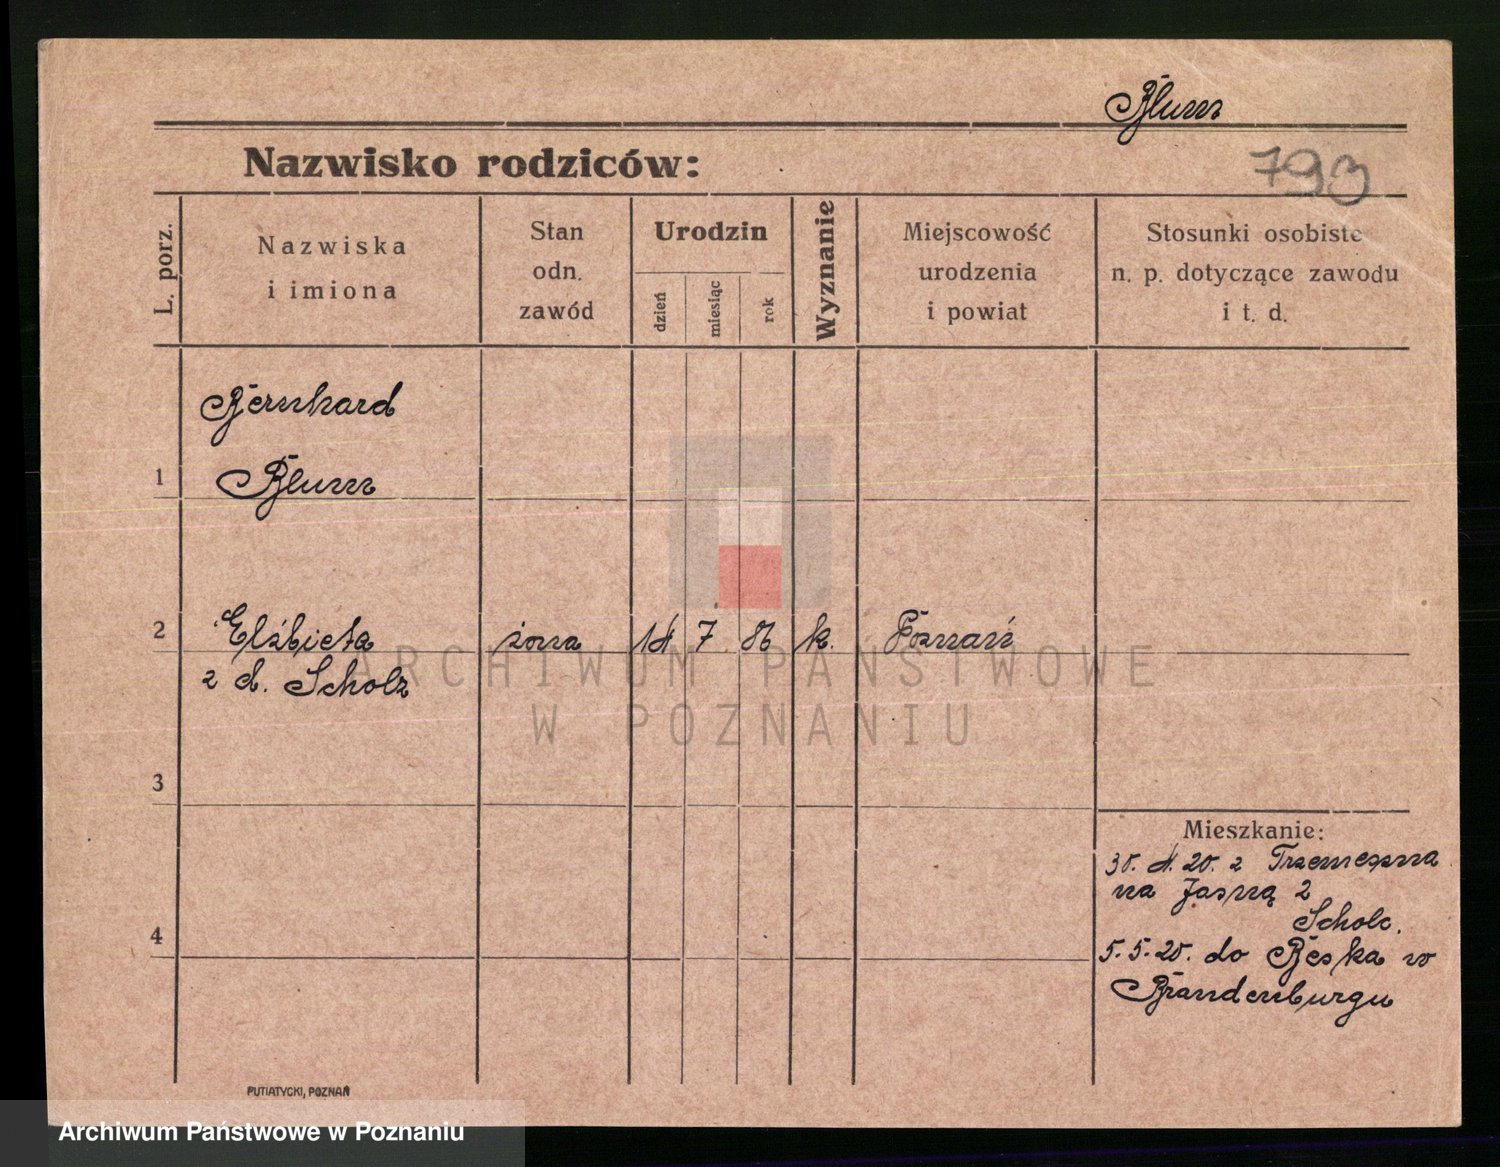 Blum
Nazwisko rodziców:
793
L. porz.
Nazwiska
i imiona
Stan
odn.
zawód
Urodzin
dzień
miesiąc
rok
Wyznanie
Miejscowość
urodzenia
i powiat
Stosunki osobiste
n. p. dotyczące zawodu
i t. d.
Bernhard
1 Blum
2 Elżbieta żona 14 7 86 k. Poznań
z d. Scholz
ARCHIWUM PAŃSTWOWE
W POZNANIU
3
Mieszkanie:
30. 4. 20. z Trzemeszna
na Jasną 2
Scholc.
4
5.5.20. do Beska w
Brandenburgu
PUTIATYCKI, POZNAŃ
Archiwum Państwowe w Poznaniu